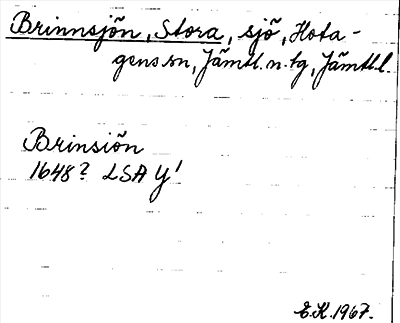 Brinnsjön, Stora, sjö, Hota-
gens sn, Jämtl. n. tg, Jämtl.l.
Brinsiön
1648? LSA Y'
E.K. 1967.